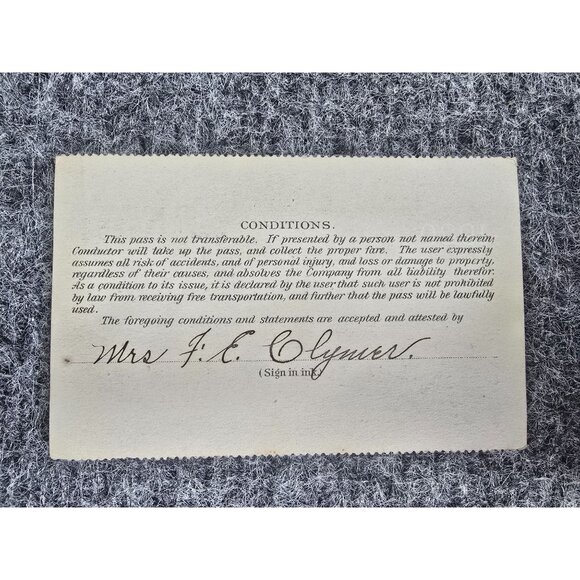 CONDITIONS.
This pass is not transferable. If presented by a person not named therein;
Conductor will take up the pass, and collect the proper fare. The user expressly
assumes all risk of accidents, and of personal injury, and loss or damage to property,
regardless of their causes, and absolves the Company from all liability therefor.
As a condition to its issue, it is declared by the user that such user is not prohibited
by law from receiving free transportation, and further that the pass will be lawfully
used.
The foregoing conditions and statements are accepted and attested by
Mrs F. E. Clymer.
(Sign in ink)